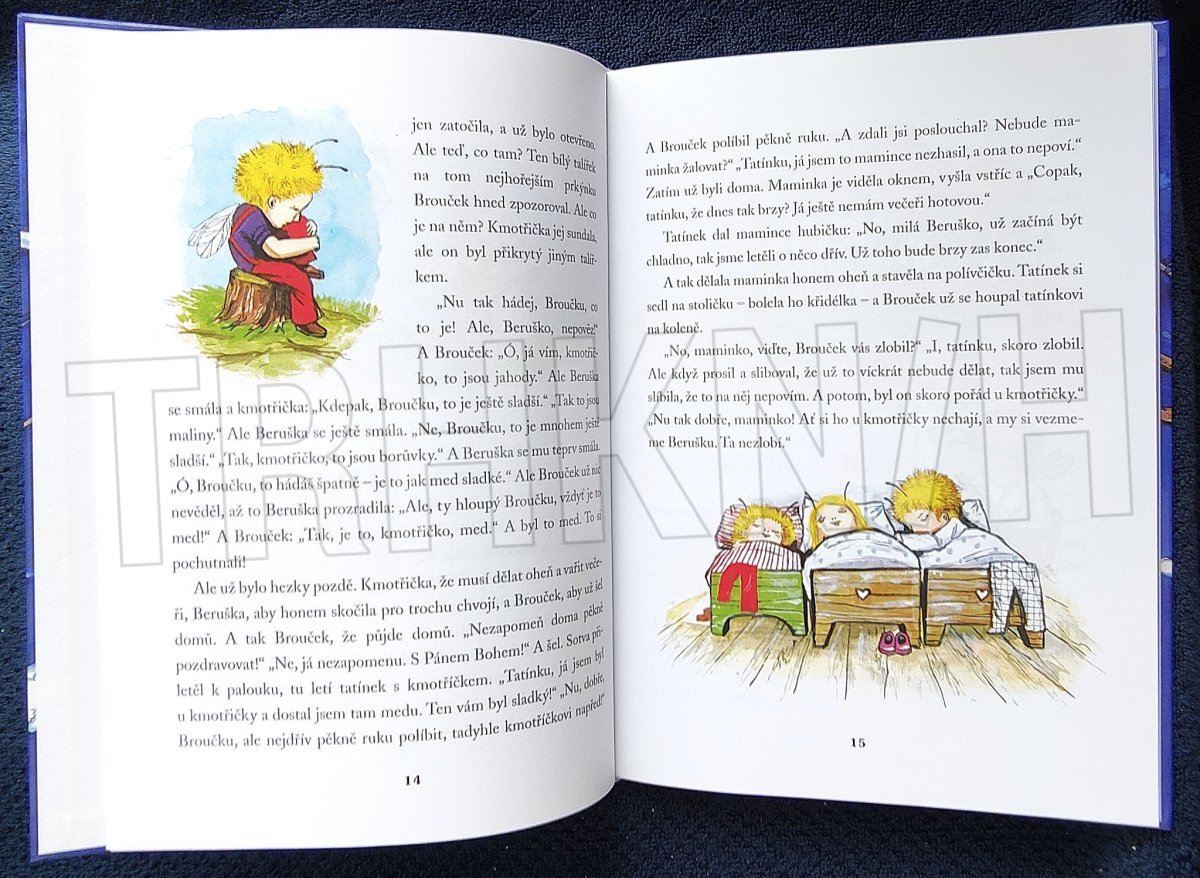 jen zatočila, a už bylo otevřeno.
Ale teď, co tam? Ten bílý talířek
na tom nejhořejším prkýnku
Brouček hned zpozoroval. Ale co
je na něm? Kmotřička jej sundala,
ale on byl přikrytý jiným talíř-
kem.
„Nu tak hádej, Broučku, co
to je! Ale, Beruško, nepověz!“
A Brouček: „Ó, já vím, kmotřič-
ko, to jsou jahody.“ Ale Beruška
se smála a kmotřička: „Kdepak, Broučku, to je ještě sladší.“ „Tak to jsou
maliny.“ Ale Beruška se ještě smála. „Ne, Broučku, to je mnohem ještě
sladší.“ „Tak, kmotřičko, to jsou borůvky.“ A Beruška se mu teprv smála.
„Ó, Broučku, to hádáš špatně – je to jak med sladké.“ Ale Brouček už nic
nevěděl, až to Beruška prozradila: „Ale, ty hloupý Broučku, vždyť je to
med!“ A Brouček: „Tak, je to, kmotřičko, med.“ A byl to med. To si
pochutnali!
Ale už bylo hezky pozdě. Kmotřička, že musí dělat oheň a vařit veče-
ři, Beruška, aby honem skočila pro trochu chvojí, a Brouček, aby už šel
domů. A tak Brouček, že půjde domů. „Nezapomeň doma pěkně
pozdravovat!“ „Ne, já nezapomenu. S Pánem Bohem!“ A šel. Sotva při-
letěl k palouku, tu letí tatínek s kmotříčkem. „Tatínku, já jsem byl
u kmotřičky a dostal jsem tam medu. Ten vám byl sladký!“ „Nu, dobře,
Broučku, ale nejdřív pěkně ruku políbit, tadyhle kmotříčkovi napřed!“
14
A Brouček políbil pěkně ruku. „A zdali jsi poslouchal? Nebude ma-
minka žalovat?“ „Tatínku, já jsem to mamince nezhasil, a ona to nepoví.“
Zatím už byli doma. Maminka je viděla oknem, vyšla vstříc a „Copak,
tatínku, že dnes tak brzy? Já ještě nemám večeři hotovou.“
Tatínek dal mamince hubičku: „No, milá Beruško, už začíná být
chladno, tak jsme letěli o něco dřív. Už toho bude brzy zas konec.“
A tak dělala maminka honem oheň a stavěla na polívčičku. Tatínek si
sedl na stoličku – bolela ho křidélka – a Brouček už se houpal tatínkovi
na koleně.
„No, maminko, viďte, Brouček vás zlobil?“ „I, tatínku, skoro zlobil.
Ale když prosil a sliboval, že už to víckrát nebude dělat, tak jsem mu
slíbila, že to na něj nepovím. A potom, byl on skoro pořád u kmotřičky.“
„Nu tak dobře, maminko! Ať si ho u kmotřičky nechají, a my si vezme-
me Berušku. Ta nezlobí.“
15
TRHKNIH